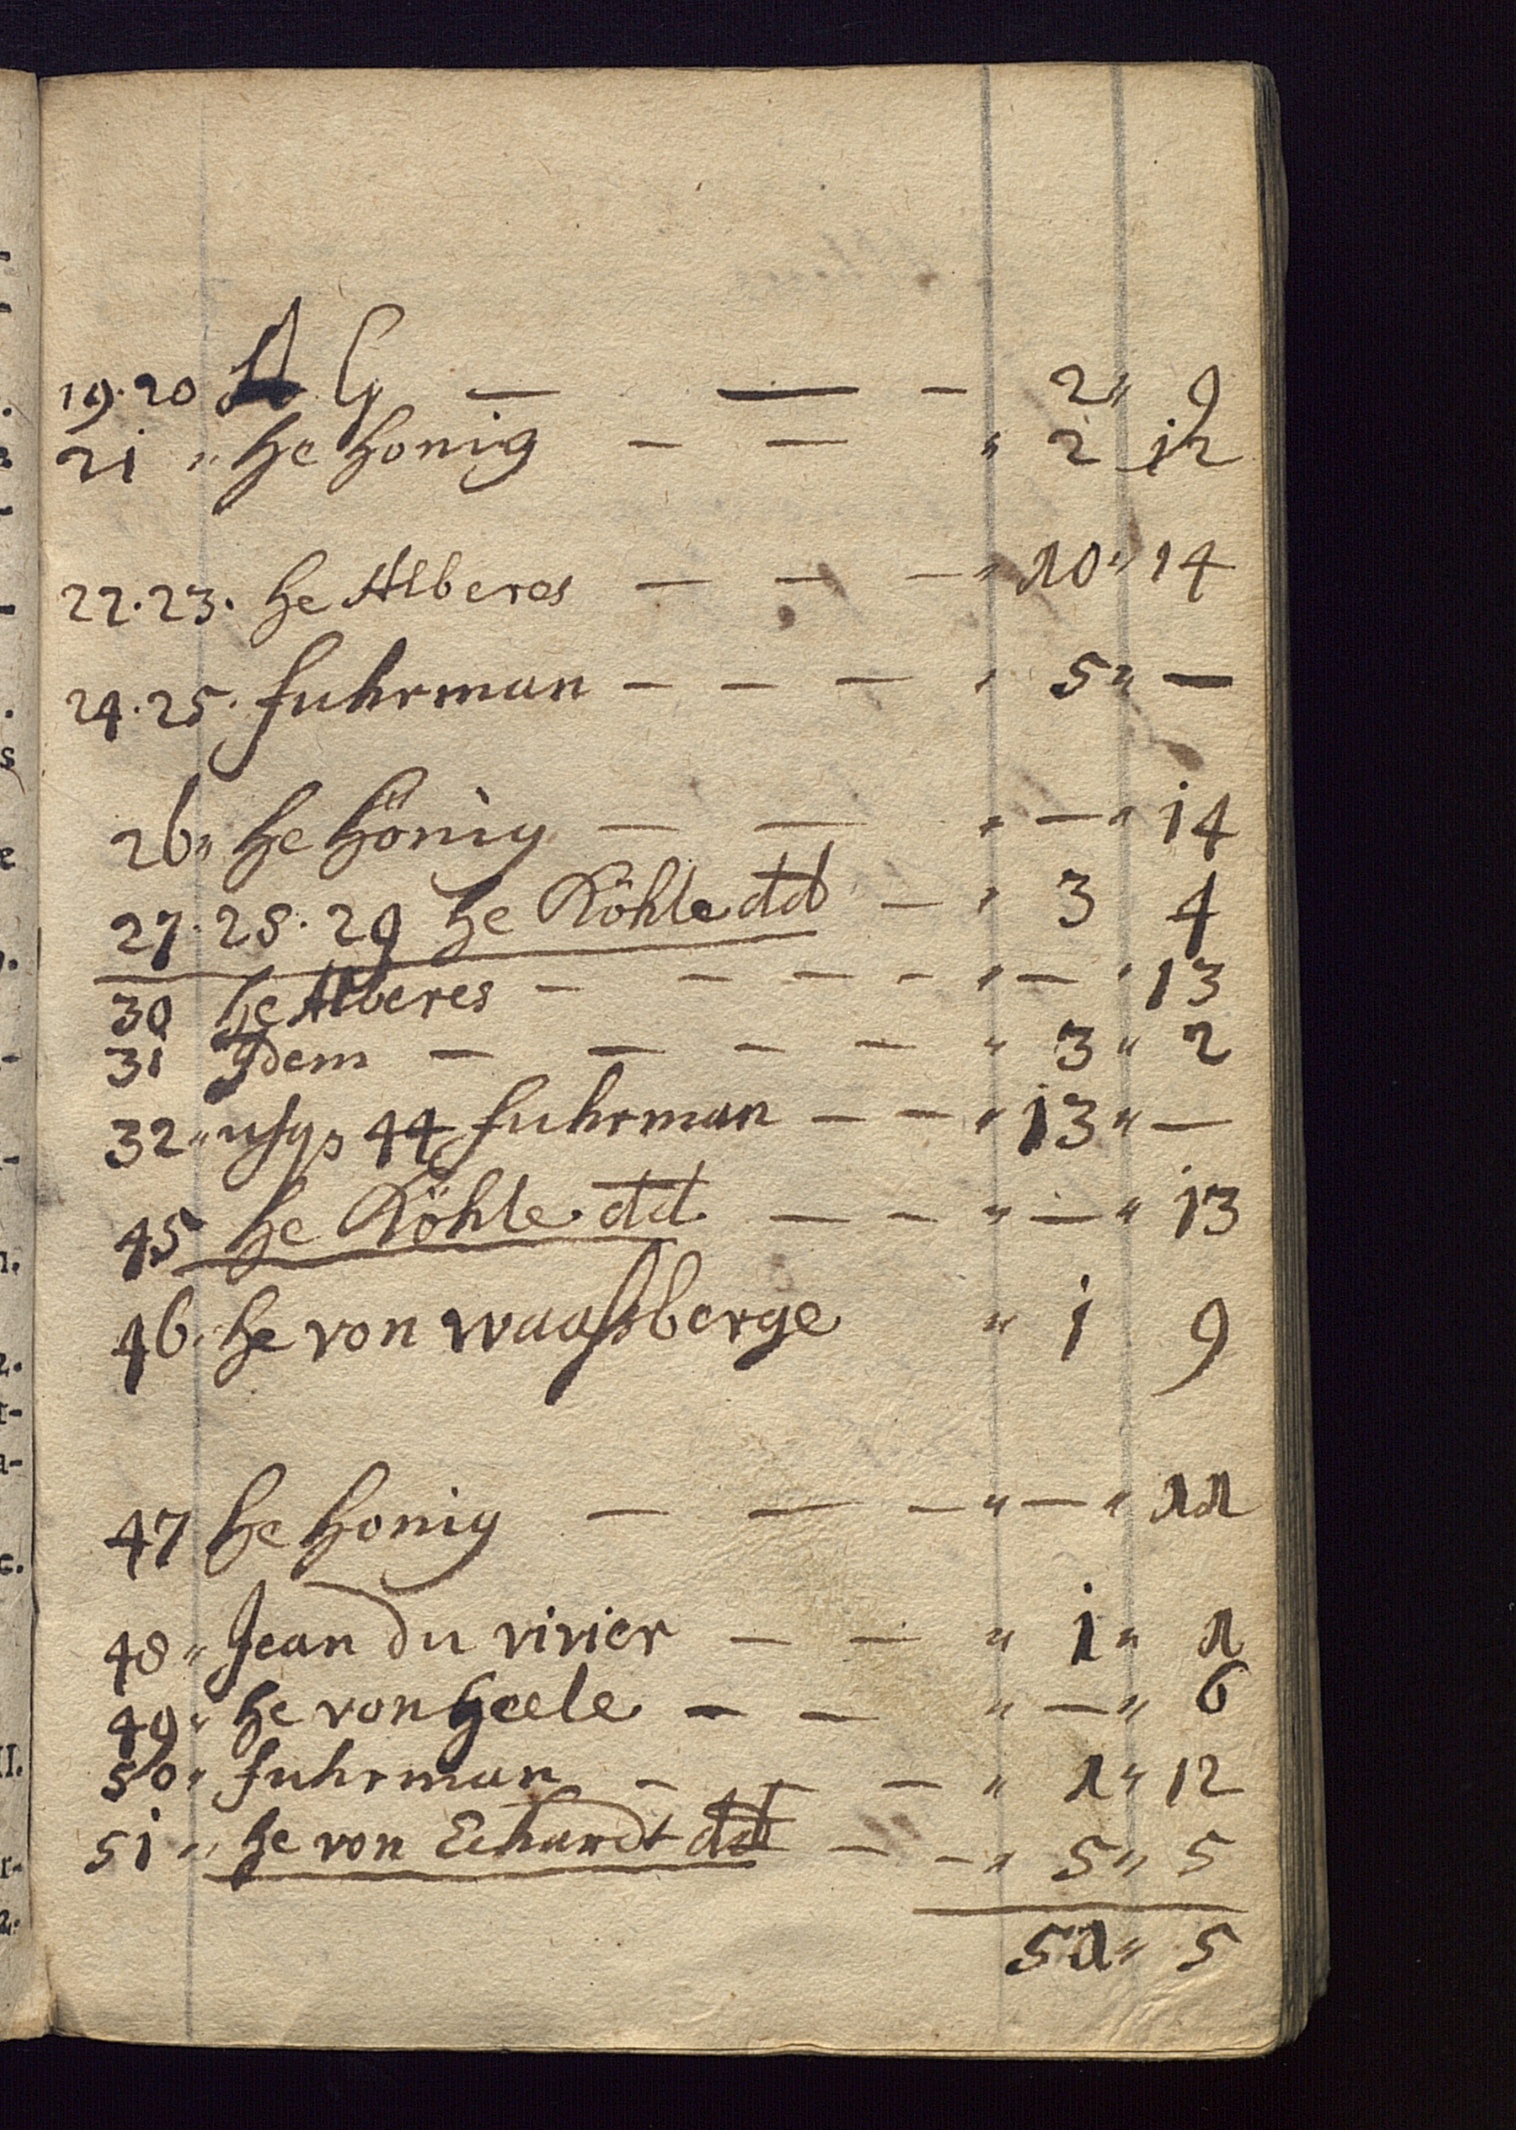 19.20 — — — 2 " 9
21 " he honig — — " 2 12
22.23. he Alberes — — — " 10 " 14
24.25. fuhrman — — — " 5 " —
26 " he hönig — — " — " 14
27.28.29 he Köhle dd — " 3 4
30 he Alberes — — — — " — " 13
31 Idem — — — — " 3 " 2
32 " 44 fuhrman — — " 13 " —
45 he Köhle dd — — " — " 13
46. he von waasberge " 1 9
47 he honig — — — " — " 11
48 " Jean du vivier — — " 1 " 1
49 " he von heele — — " — " 6
50 " fuhrman — — " 1 " 12
51 " he von Echardt dd — — " 5 " 5
51 " 5